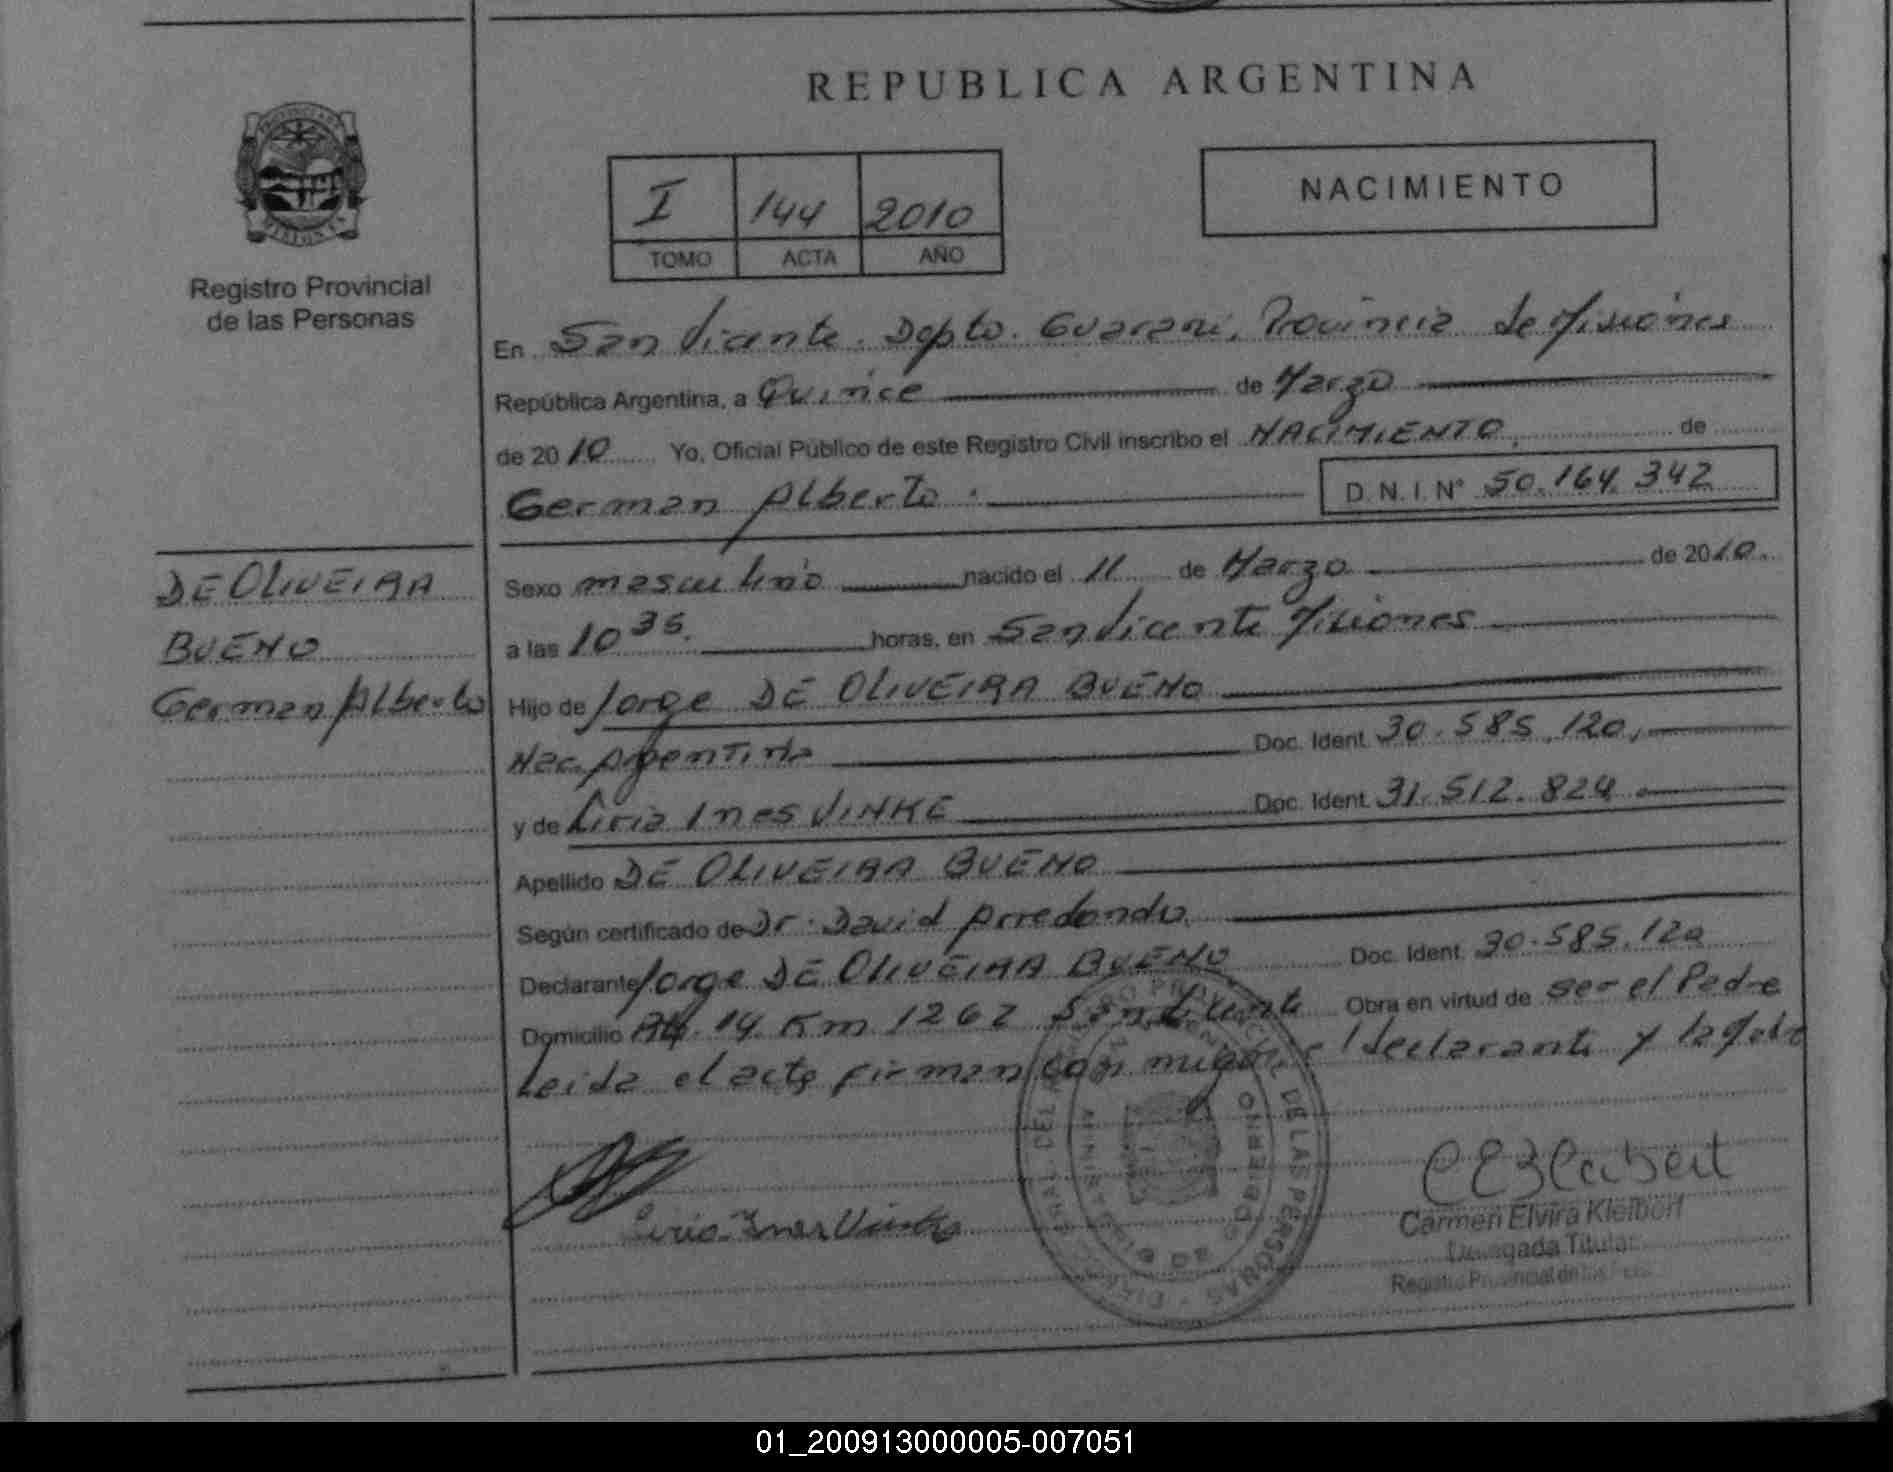 REPUBLICA ARGENTINA
I 144 2010
TOMO ACTA AÑO
NACIMIENTO
Registro Provincial
de las Personas
En San Vicente. Dpto. Guarani, Provincia de Misiones
República Argentina, a Quince de Marzo
de 2010 Yo, Oficial Público de este Registro Civil inscribo el NACIMIENTO, de
German Alberto. D. N. I. N° 50.164.342
DE OLIVEIRA
BUENO
German Alberto
Sexo masculino nacido el 11 de Marzo de 2010.
a las 10 35. horas, en San Vicente Misiones
Hijo de Jorge DE OLIVEIRA BUENO
Nac. Argentina Doc. Ident. 30.585.120,
y de Liria Ines VINKE Doc. Ident. 31.512.824
Apellido DE OLIVEIRA BUENO
Según certificado de Dr. David Arredondo
Declarante Jorge DE OLIVEIRA BUENO Doc. Ident. 30.585.120
Domicilio Rta. 14 Km 1262 San Vicente Obra en virtud de ser el Padre
Leida el acta firman con migo, el declarante y la Madre
Liria Ines Vinke
DEL REGISTRO PROVINCIAL DE LAS PERSONAS
Carmen Elvira Kleibert
Delegada Titular
Registro Provincial de las
01_200913000005-007051